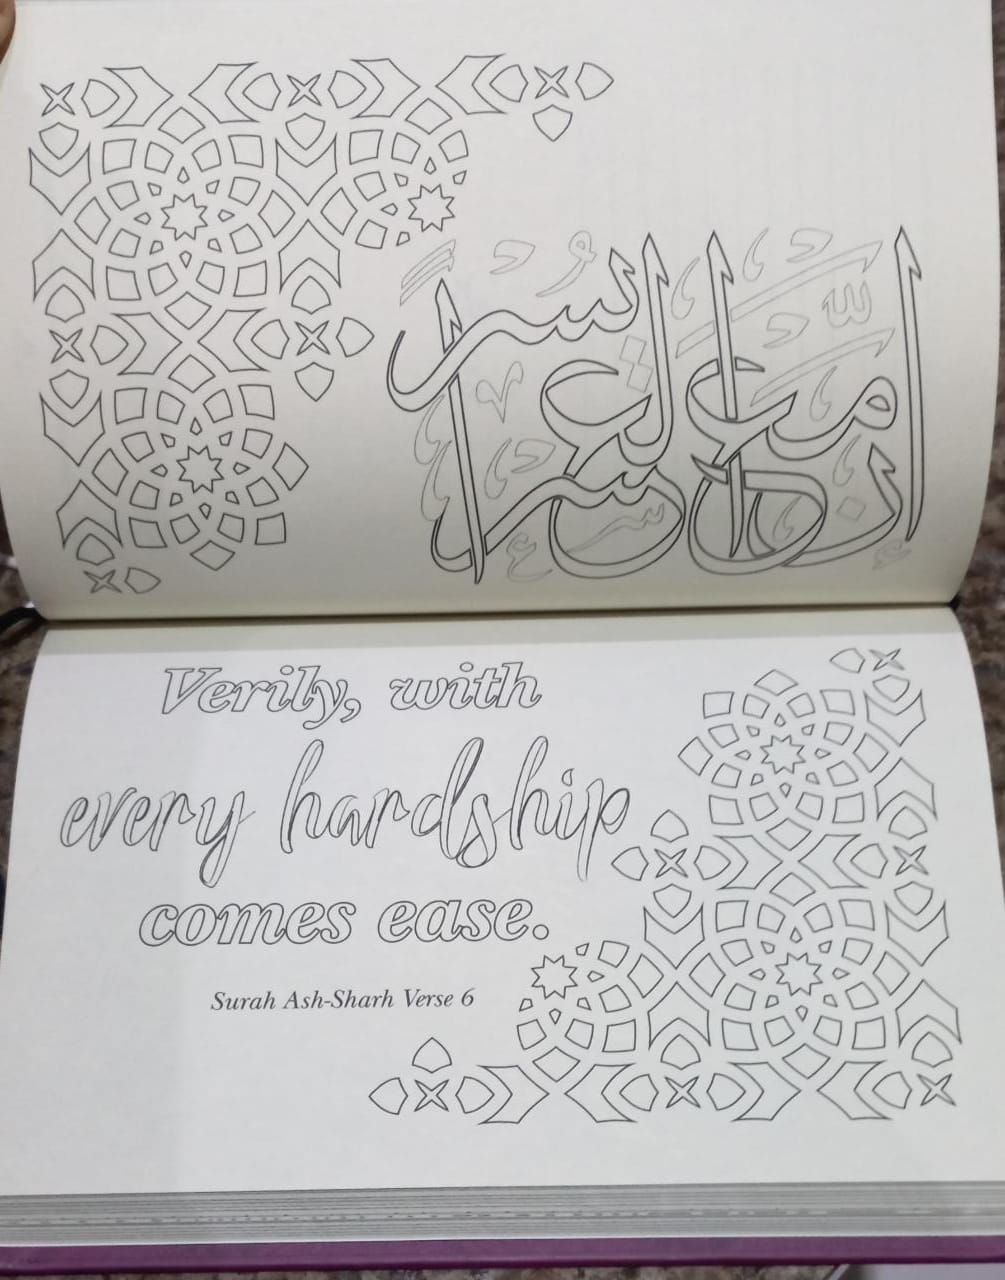 إِنَّ مَعَ الْعُسْرِ يُسْرًا
Verily, with
every hardship
comes ease.
Surah Ash-Sharh Verse 6